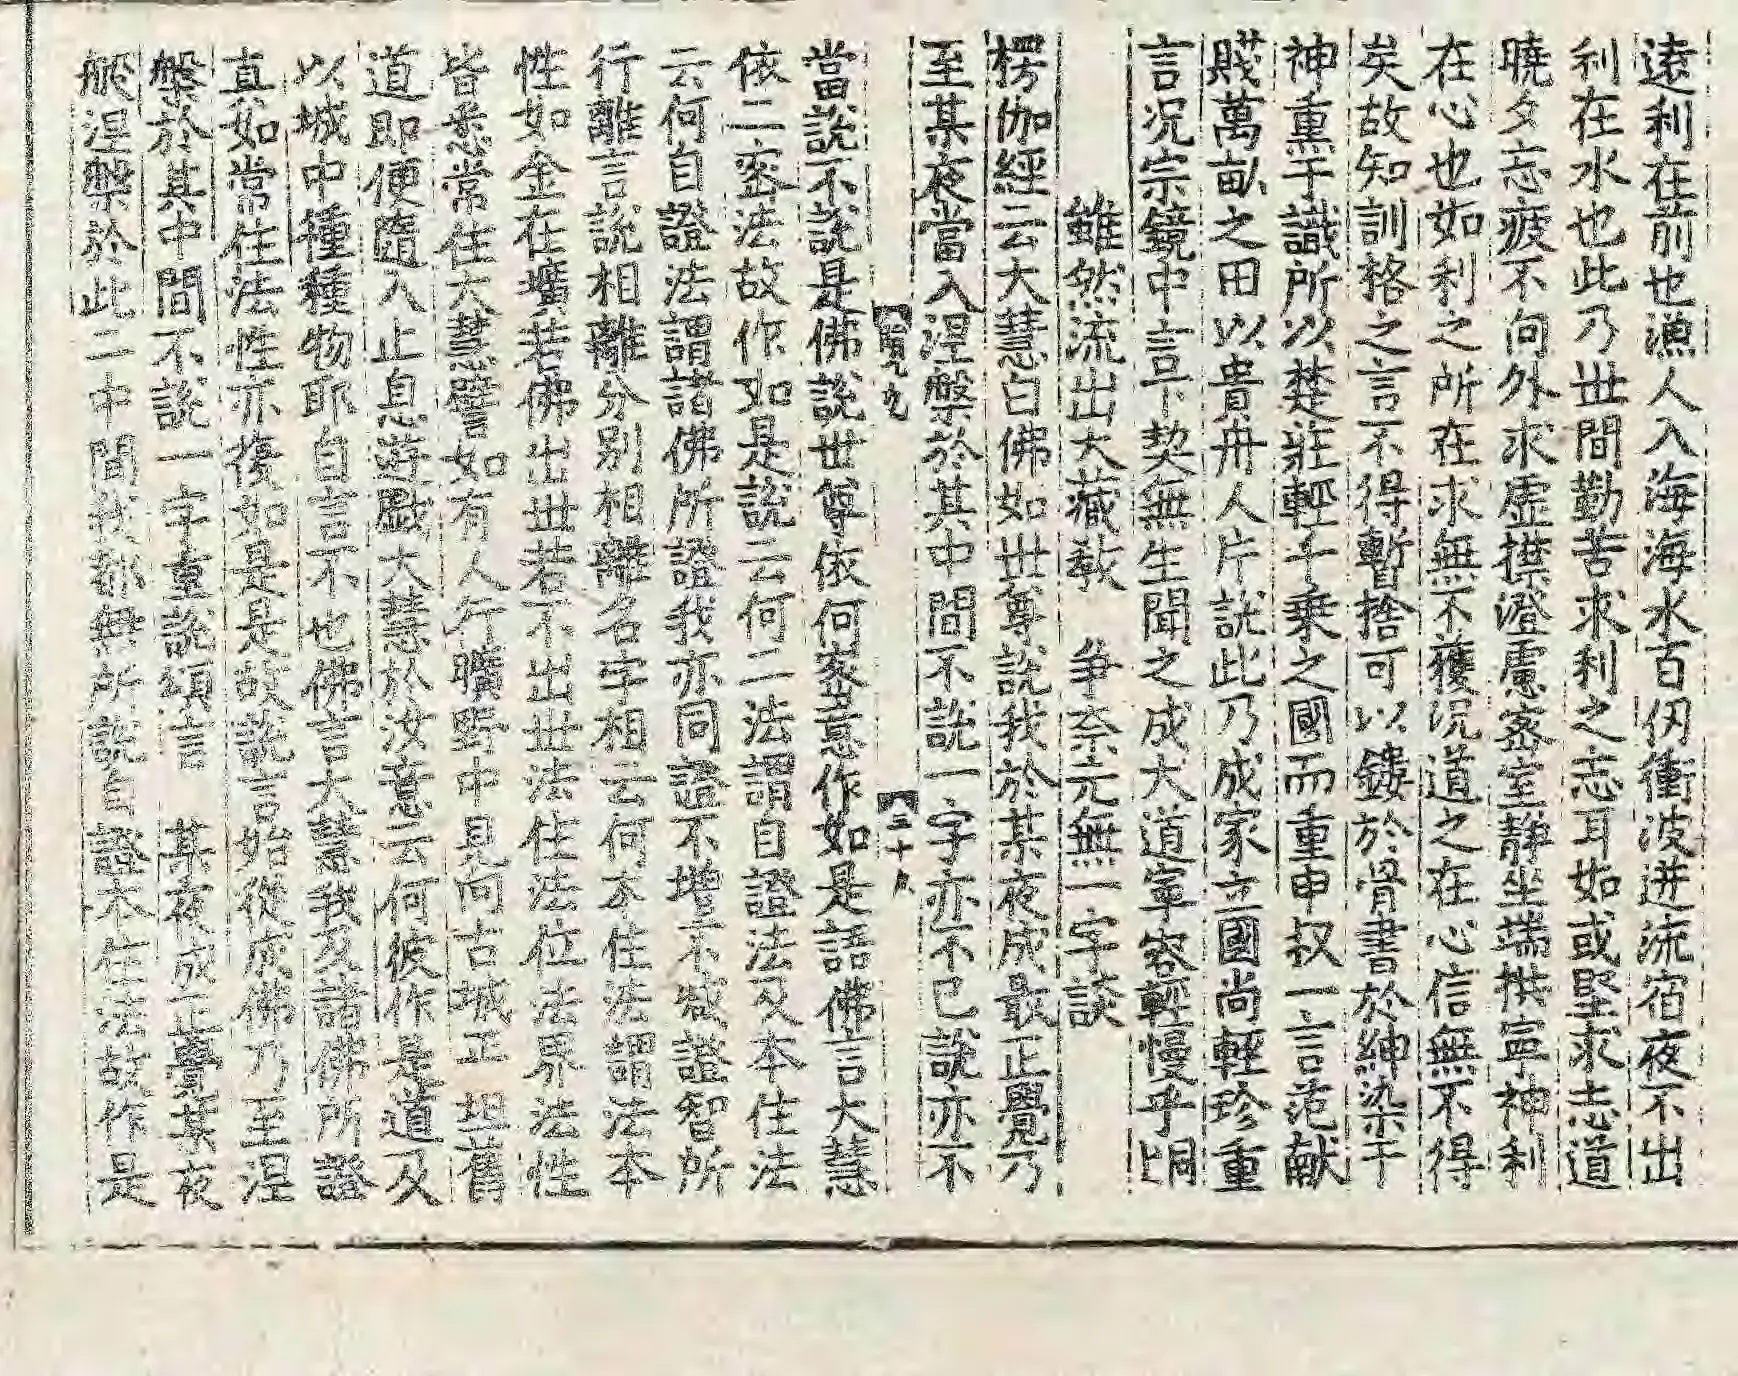 遠利在前也漁人入海海水百仭衝波逆流宿夜不出
利在水也此乃世間勤苦求利之志耳如或堅求志道
曉夕忘疲不向外求虛襟澄慮密室靜坐端拱寧神利
在心也如利之所在求無不獲況道之在心信無不得
矣故知訓格之言不得暫捨可以鏤於骨書於紳染于
神熏于識所以楚莊輕千乘之國而重申叔一言范献
賤萬畝之田以貴舟人片說此乃成家立國尚輕珍重
言況宗鏡中言下契無生聞之成大道寧容輕慢乎明
雖然流出大藏敎　爭奈元無一字談
楞伽經云大慧白佛如世尊說我於某夜成最正覺乃
至某夜當入涅槃於其中間不說一字亦不已說亦不
三十
當說不說是佛說世尊依何密意作如是語佛言大慧
依二密法故作如是說云何二法謂自證法及本住法
云何自證法謂諸佛所證我亦同證不增不減證智所
行離言說相離分別相離名字相云何本住法謂法本
性如金在壙若佛出世若不出世法住法位法界法性
皆悉常住大慧譬如有人行曠野中見向古城正坦舊
道即便隨入止息遊戲大慧於汝意云何彼作是道及
以城中種種物耶自言不也佛言大慧我及諸佛所證
直如常住法性亦復如是是故說言始從成佛乃至涅
槃於其中間不說一字重說頌言　某夜成正覺某夜
般涅槃於此二中間我都無所說自證本住法故作是